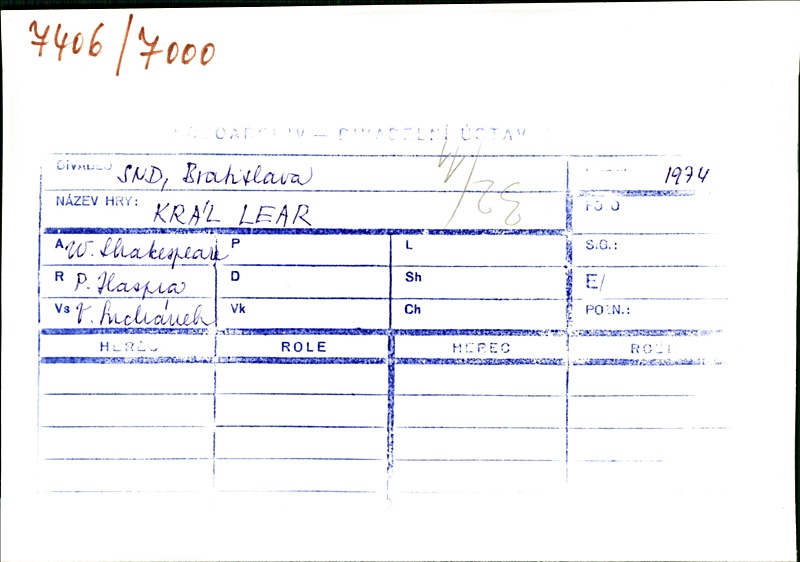 7406/7000
FOTOARCHIV — DIVADELNÍ ÚSTAV
DIVADLO SND, Bratislava 1974
NÁZEV HRY: KRÁL LEAR FOTO
32/11
A W. Shakespeare P L S.G.:
R P. Haspra D Sh E/
Vs V. Suchánek Vk Ch POZN.:
HEREC ROLE HEREC ROLE